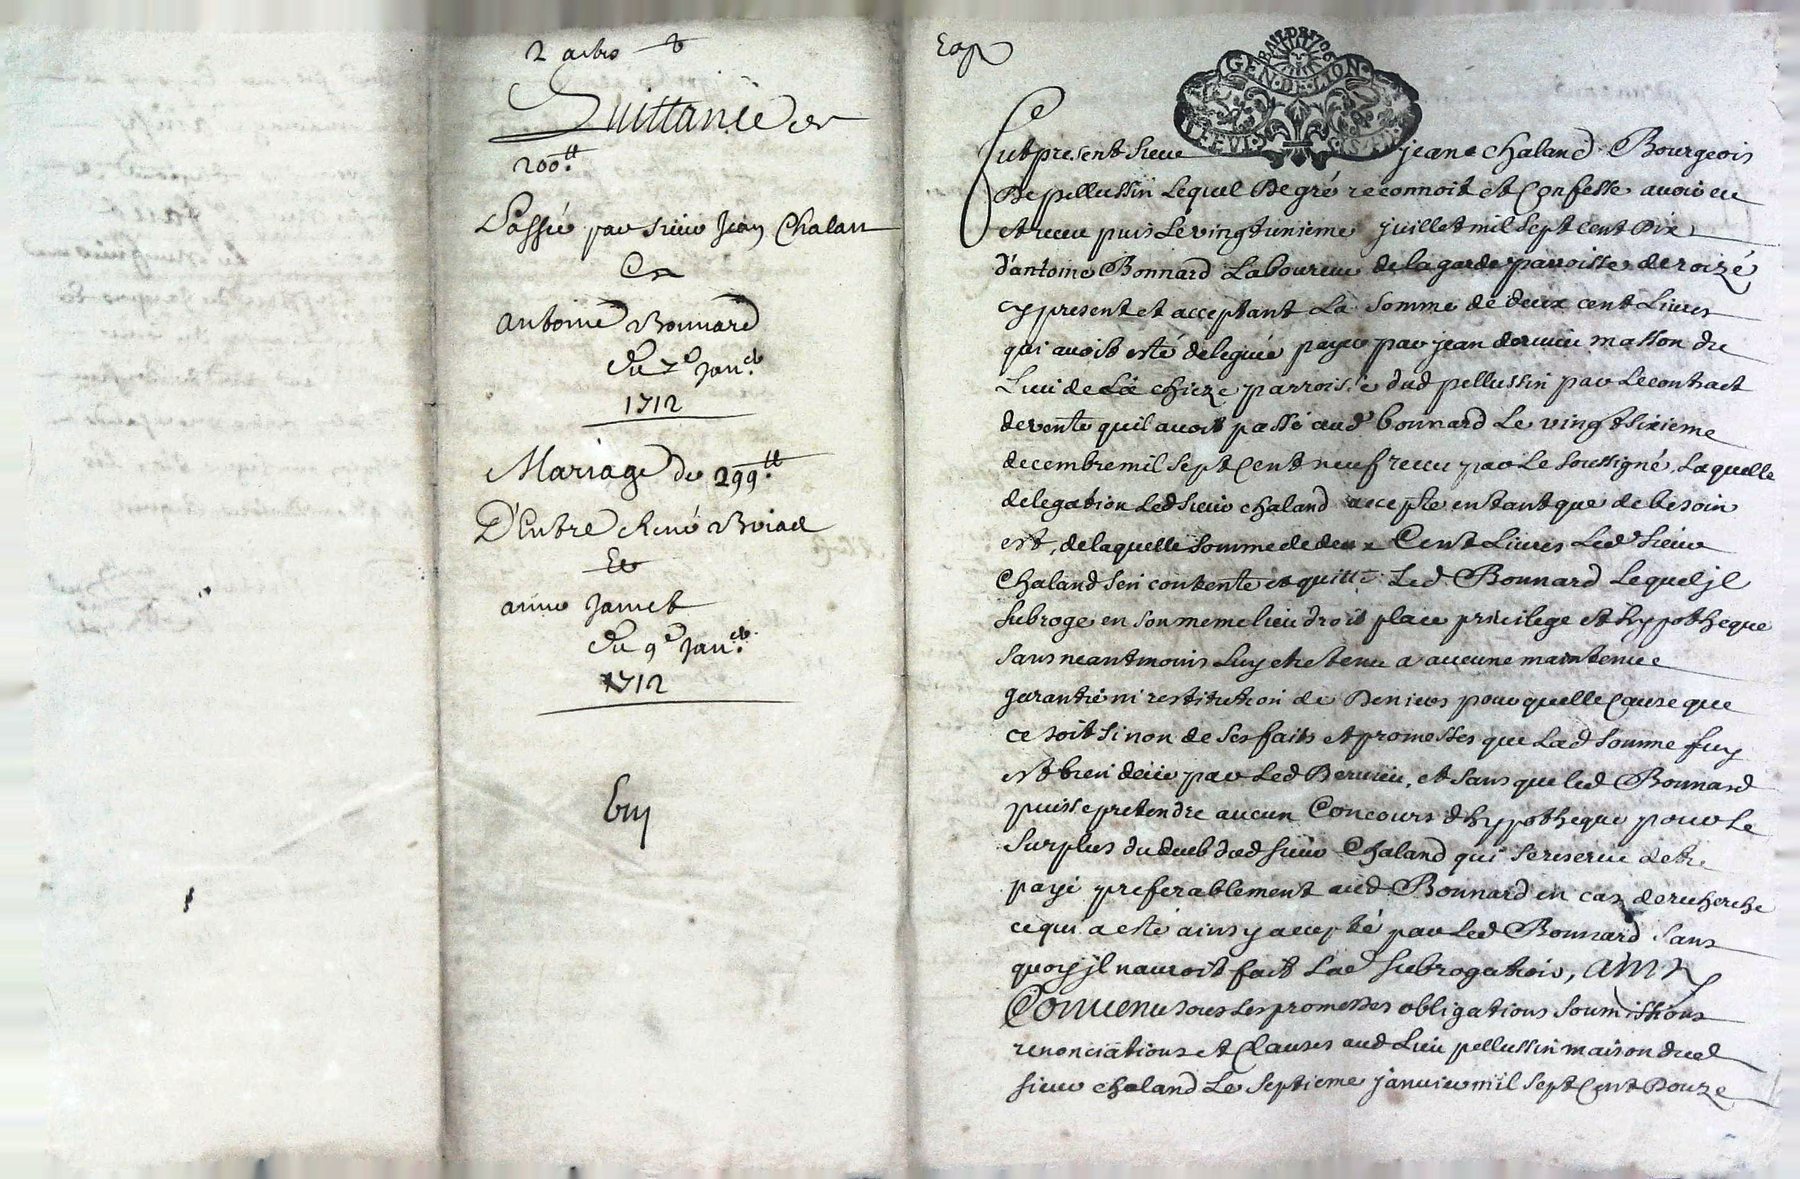 2 actes
Quittance de
200.tt
Passée par sieur Jean Chalan
Ca
antoine Bonnard
Du 7e Janr.
1712
Mariage de 299.tt
D'Entre René Boiad
Et
anne Jamet
Du 9e Janr.
1712
Exp
BAIL DE 1706
GEN·DE·LION·
Fut present Sieur jean chaland Bourgeois
De pellussin Lequel De gré reconnoit et Confesse avoir eu
et receu puis Le vingt unieme juillet mil sept cent Dix
d'antoine Bonnard Laboureur de la garde parroisse de roizé
cy present et acceptant La somme de deux cent Livres
qui avoit esté deleguée payer par jean dervieu masson du
Lieu de La chieze parroisse dud pellussin par Le contract
de vente quil avoit passé aud bonnard Le vingt sixieme
decembre mil sept Cent neuf receu par Le soussigné, Laquelle
delegation Led sieur chaland accepte en tant que de besoin
est, de laquelle somme de deux Cent Livres Led sieur
Chaland sen contente et quitte Led Bonnard Lequel jl
subroge en son meme lieu droit place privilege et hypotheque
sans neantmoins Luy etre tenu a aucune maintenue
garantie ni restitution de Deniers pour quelle Cause que
ce soit sinon de ses faits et promesses que Lad somme luy
est bien deüe par Led Dervieu, et sans que led Bonnard
puisse pretendre aucun Concours dhypotheque pour Le
surplus du deub dud sieur Chaland qui se reserve detre
payé preferablement aud Bonnard en cas de recherche
ce qui a esté ainsy accepté par Led Bonnard sans
quoy jl nauroit fait Lad subrogation,
Convenu sous Les promesses obligations soumissions
renonciations et Clauses aud Lieu pellussin maison dud
sieur chaland Le septieme janvier mil sept Cent Douze